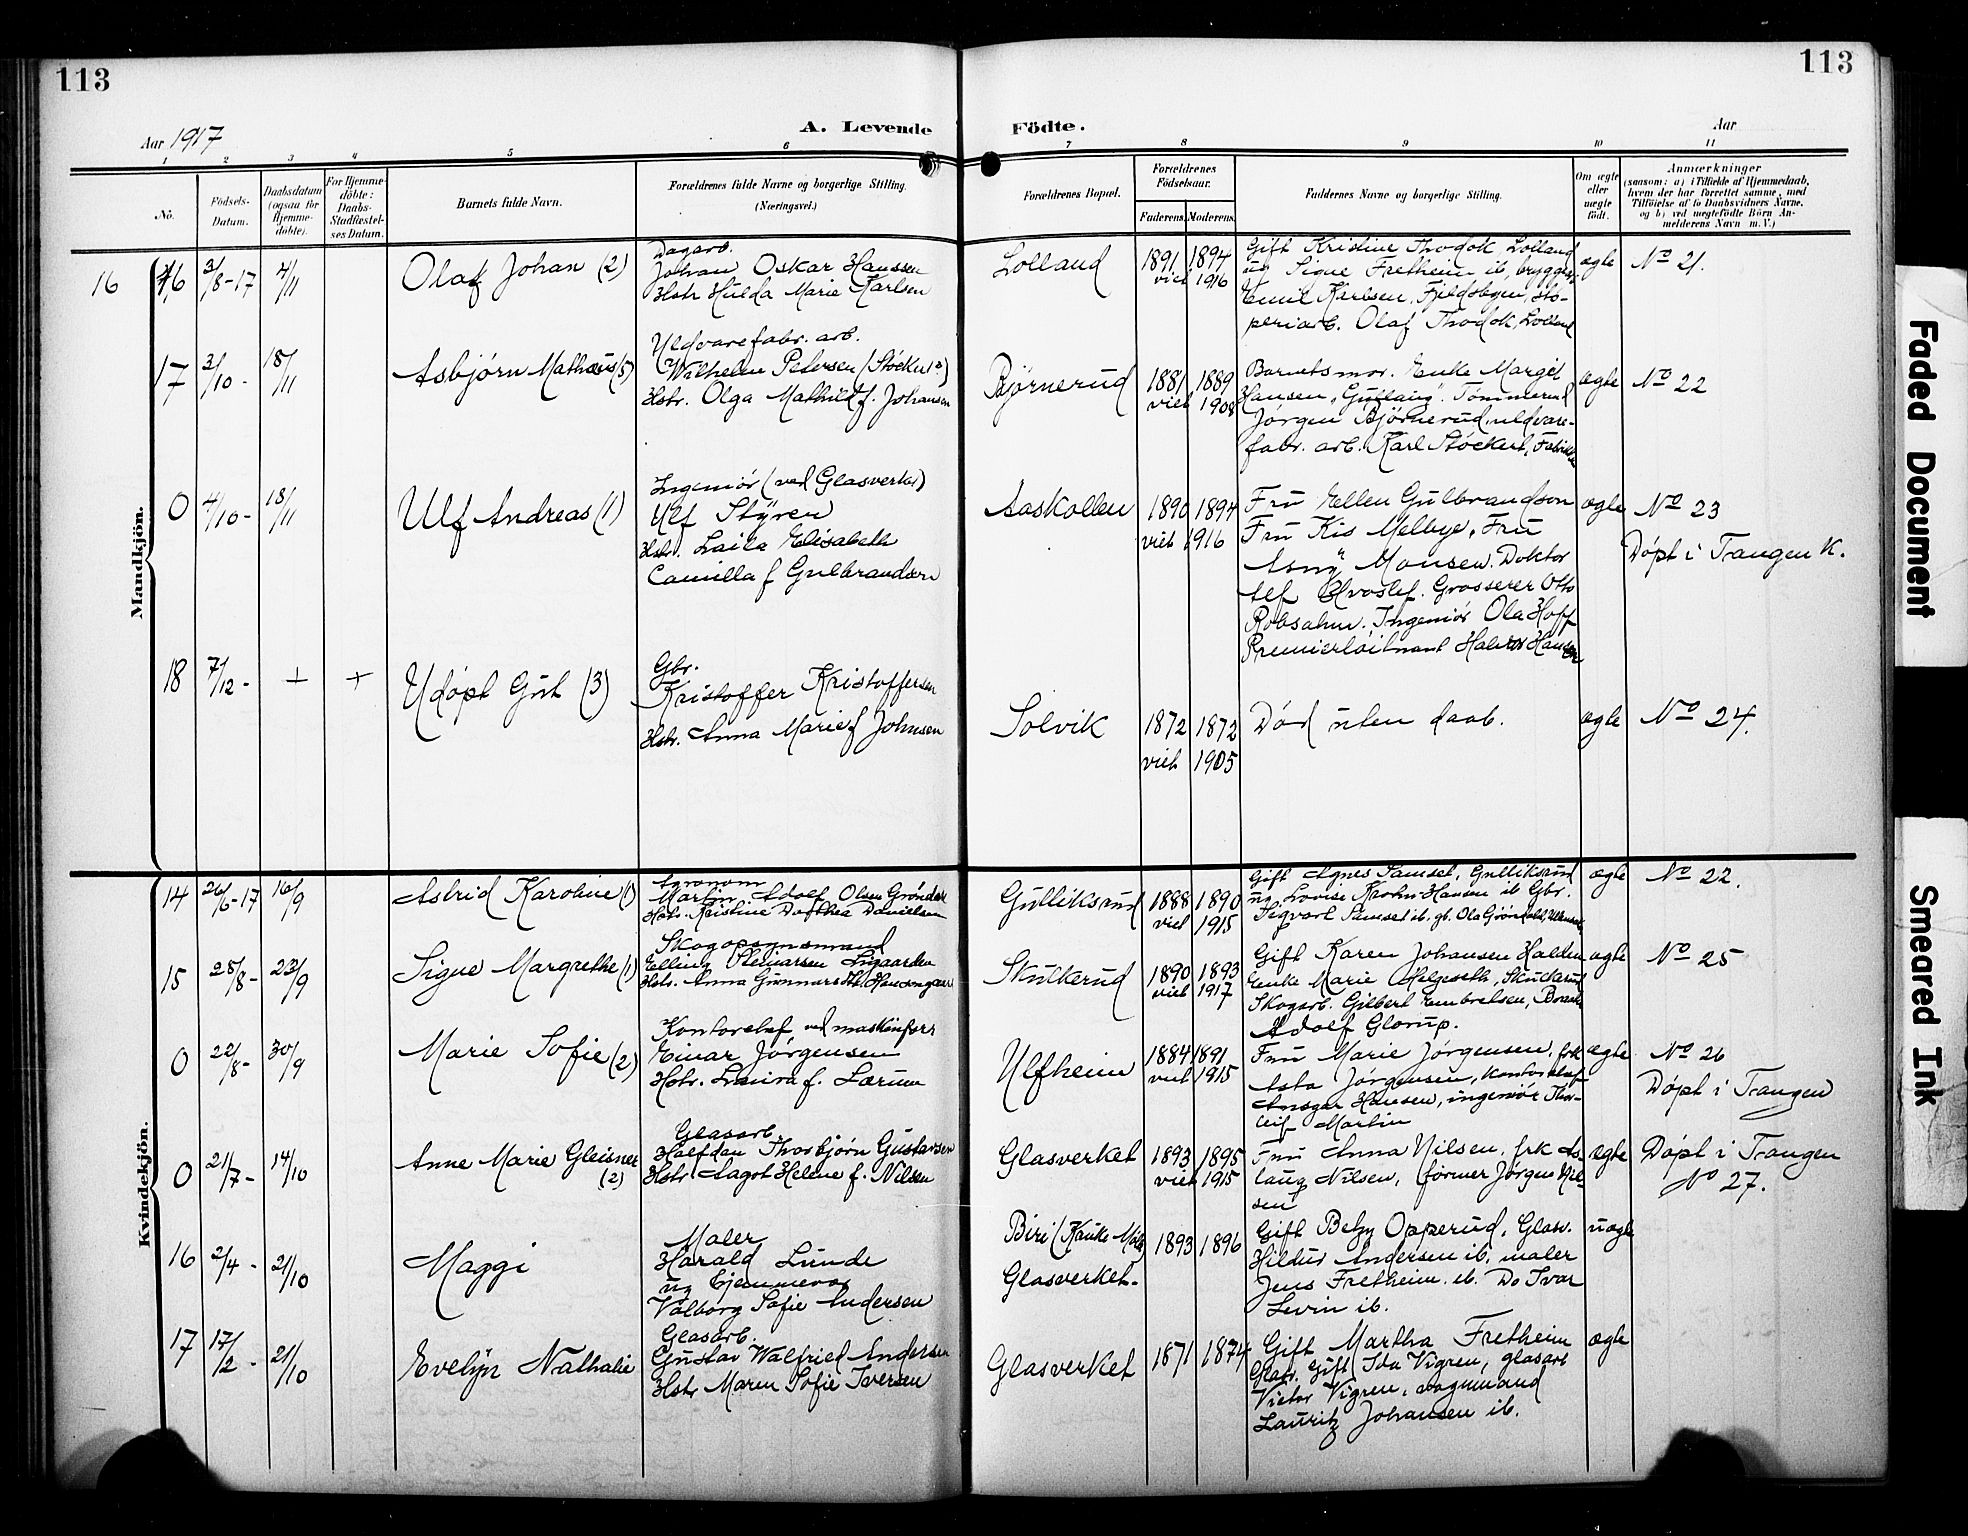 113
113
Aar 1917
A. Levende
Födte.
Aar
1 2 3 4 5 6 7 8 9 10 11
No.
Födsels-
Datum.
Daabsdatum
(ogsaa for
Hjemme-
döbte).
For Hjemme-
döbte:
Daabs-
Stadfæstel-
ses Datum.
Barnets fulde Navn.
Forældrenes fulde Navne og borgerlige Stilling.
(Næringsvei.)
Forældrenes Bopæl.
Forældrenes
Födselsaar.
Faderens. Moderens.
Faddernes Navne og borgerlige Stilling.
Om ægte
eller
uægte
födt.
Anmærkninger
(saasom: a) i Tilfælde af Hjemmedaab,
hvem der har forrettet samme, med
Tilföielse af to Daabsvidners Navne,
og b) ved uægtefödte Börn An-
melderens Navn m. V.)
Mandkjön.
16
16 3/8-17 4/11
Olaf Johan (2)
Dagarb.
Johan Oskar Hanssen
Hstr Hulda Marie Karlsen
Lolland
1891 1894
viet 1916
Gift Kristine Thodok Lolland
ug Signe Fretheim ib, brygger
Emil Karlsen, Fjeldsbyen, stø-
periarb. Olaf Thodok, Lolland
ægte
No 21.
17 3/10- 18/11
Asbjørn Mathæus (5)
Uldvarefabr. arb.
Wilhelm Petersen (Støckert)
Hstr. Olga Mathild f. Johansen
Bjørnerud
1881 1889
viet 1908
Barnets mor. Enke Margit
Hansen, "Gutlaug". Tømmermd
Jørgen Bjørnerud, uldvare-
fabr. arb. Karl Støckert, Fabrikken
ægte
No 22
0 4/10- 18/11
Ulf Andreas (1)
Ingeniør (ved Glasverket)
Ulf Styren
Hstr. Laila Elisabeth
Camilla f Gulbrandsen
Aaskollen
1890 1894
viet 1916
Fru Ellen Gulbrandson
Fru Kis Melbye, Fru
Asny Monsen. Doktor
Alf Hvoslef. Grosserer Otto
Robsahm. Ingeniør Ola Hoff
Premierløitnant Halvor Hansen
ægte
No 23
Døpt i Tangen K.
18 7/12- + +
Udøpt Gut (3)
Gbr.
Kristoffer Kristoffersen
Hstr. Anna Marie f Johnsen
Solvik
1872 1872
viet 1905
Død uten daab.
ægte
No 24.
Kvindekjön.
14 26/6-17 16/9
Astrid Karoline (1)
Agronom
Martin Adolf Olsen
Hstr. Kristine Dorthea Danielsen
Gulliksrud
1888 1890
viet 1915
Gift Agnes Samset, Gulliksrud
ug. Lovise Krohn-Hansen ib Gbr.
Segvart Samset ib. gb. Ola
ægte
No 22.
15 28/8- 23/9
Signe Margrethe (1)
Skogopsynsmand
Elling
Hstr. Anna
Skulkerud
1890 1893
viet 1917
Gift Karen Johansen Halden
Enke Marie Helgeseth, Skulkerud
Skogarb. Gilbert Embretsen,
Adolf Glorup.
ægte
No 25
0 22/8- 30/9
Marie Sofie (2)
Kontorchef ved maskinforr
Einar Jørgensen
Hstr. Laura f. Lærum
Ulfheim
1884 1891
viet 1915
Fru Marie Jørgensen, frk
Asta Jørgensen, kontorchef
Ansgar Hansen, ingeniør Thor-
leif Martin
ægte
No 26
Døpt i Tangen
0 21/7- 14/10
Anne Marie Gleisner
(2)
Glasarb
Halfdan Thorbjørn Gustavsen
Hstr. Dagot Helene f. Nilsen
Glasverket
1893 1895
viet 1915
Fru Anna Nilsen, frk As-
laug Nilsen, former Jørgen Niel-
sen
ægte
Døpt i Tangen
No 27.
16 2/4- 21/10
Maggi
Maler
Harald Lunde
ug hjemmevær
Valborg Sofie Andersen
Biri
Glasverket-
1893 1896
Gift Betzy Opperud, Glasv.
Hildur Andersen ib, maler
Jens Fretheim. ib. Do Ivar
Levin ib.
uægte
17 17/2- 21/10
Evelyn Nathalie
Glasarb.
Gustav Walfried Andersen
Hstr Maren Sofie Iversen
Glasverket
1871 1874
Gift Martha Fretheim
Glasv. Gift Ida Vigren, glasarb
Victor Vigren, vognmand
Lauritz Johansen ib.
ægte
Faded Document
Smeared Ink